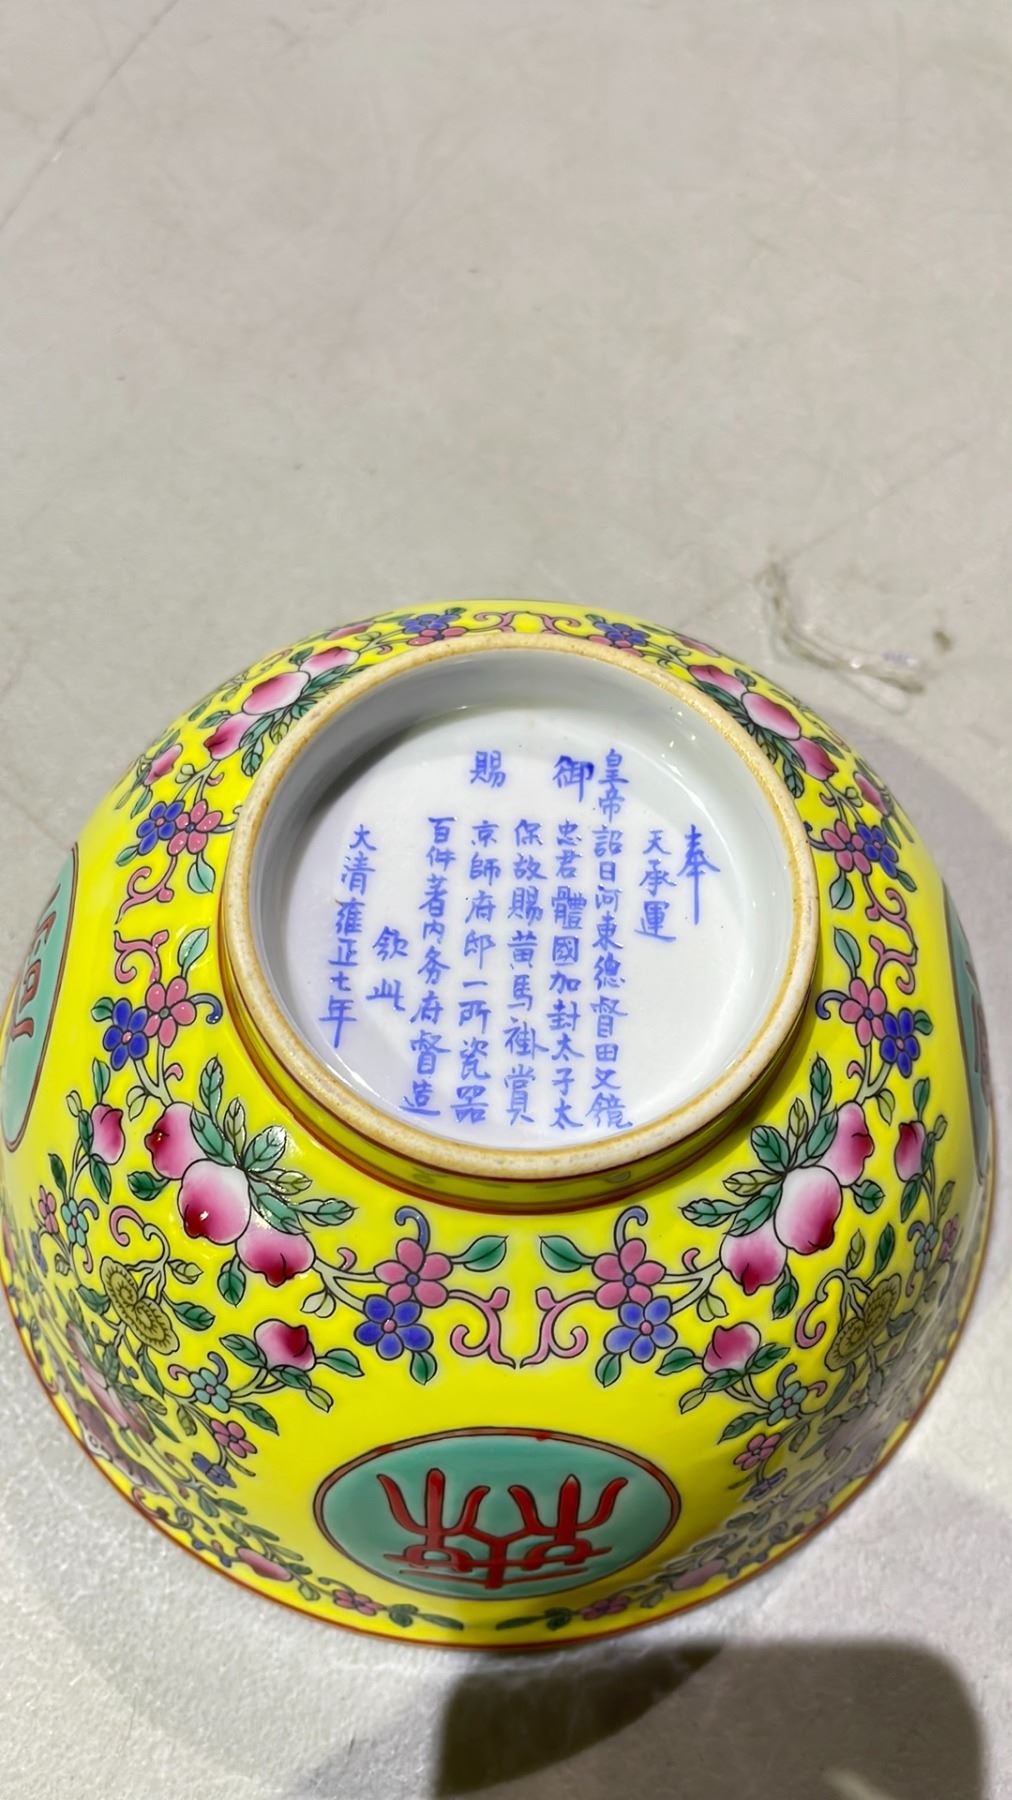 奉
天承運
皇帝詔曰河東總督田文鏡
御
忠君體國加封太子太
保故賜黄馬褂賞
賜
京師府邸一所瓷器
百件著内务府督造
欽此
大清雍正七年